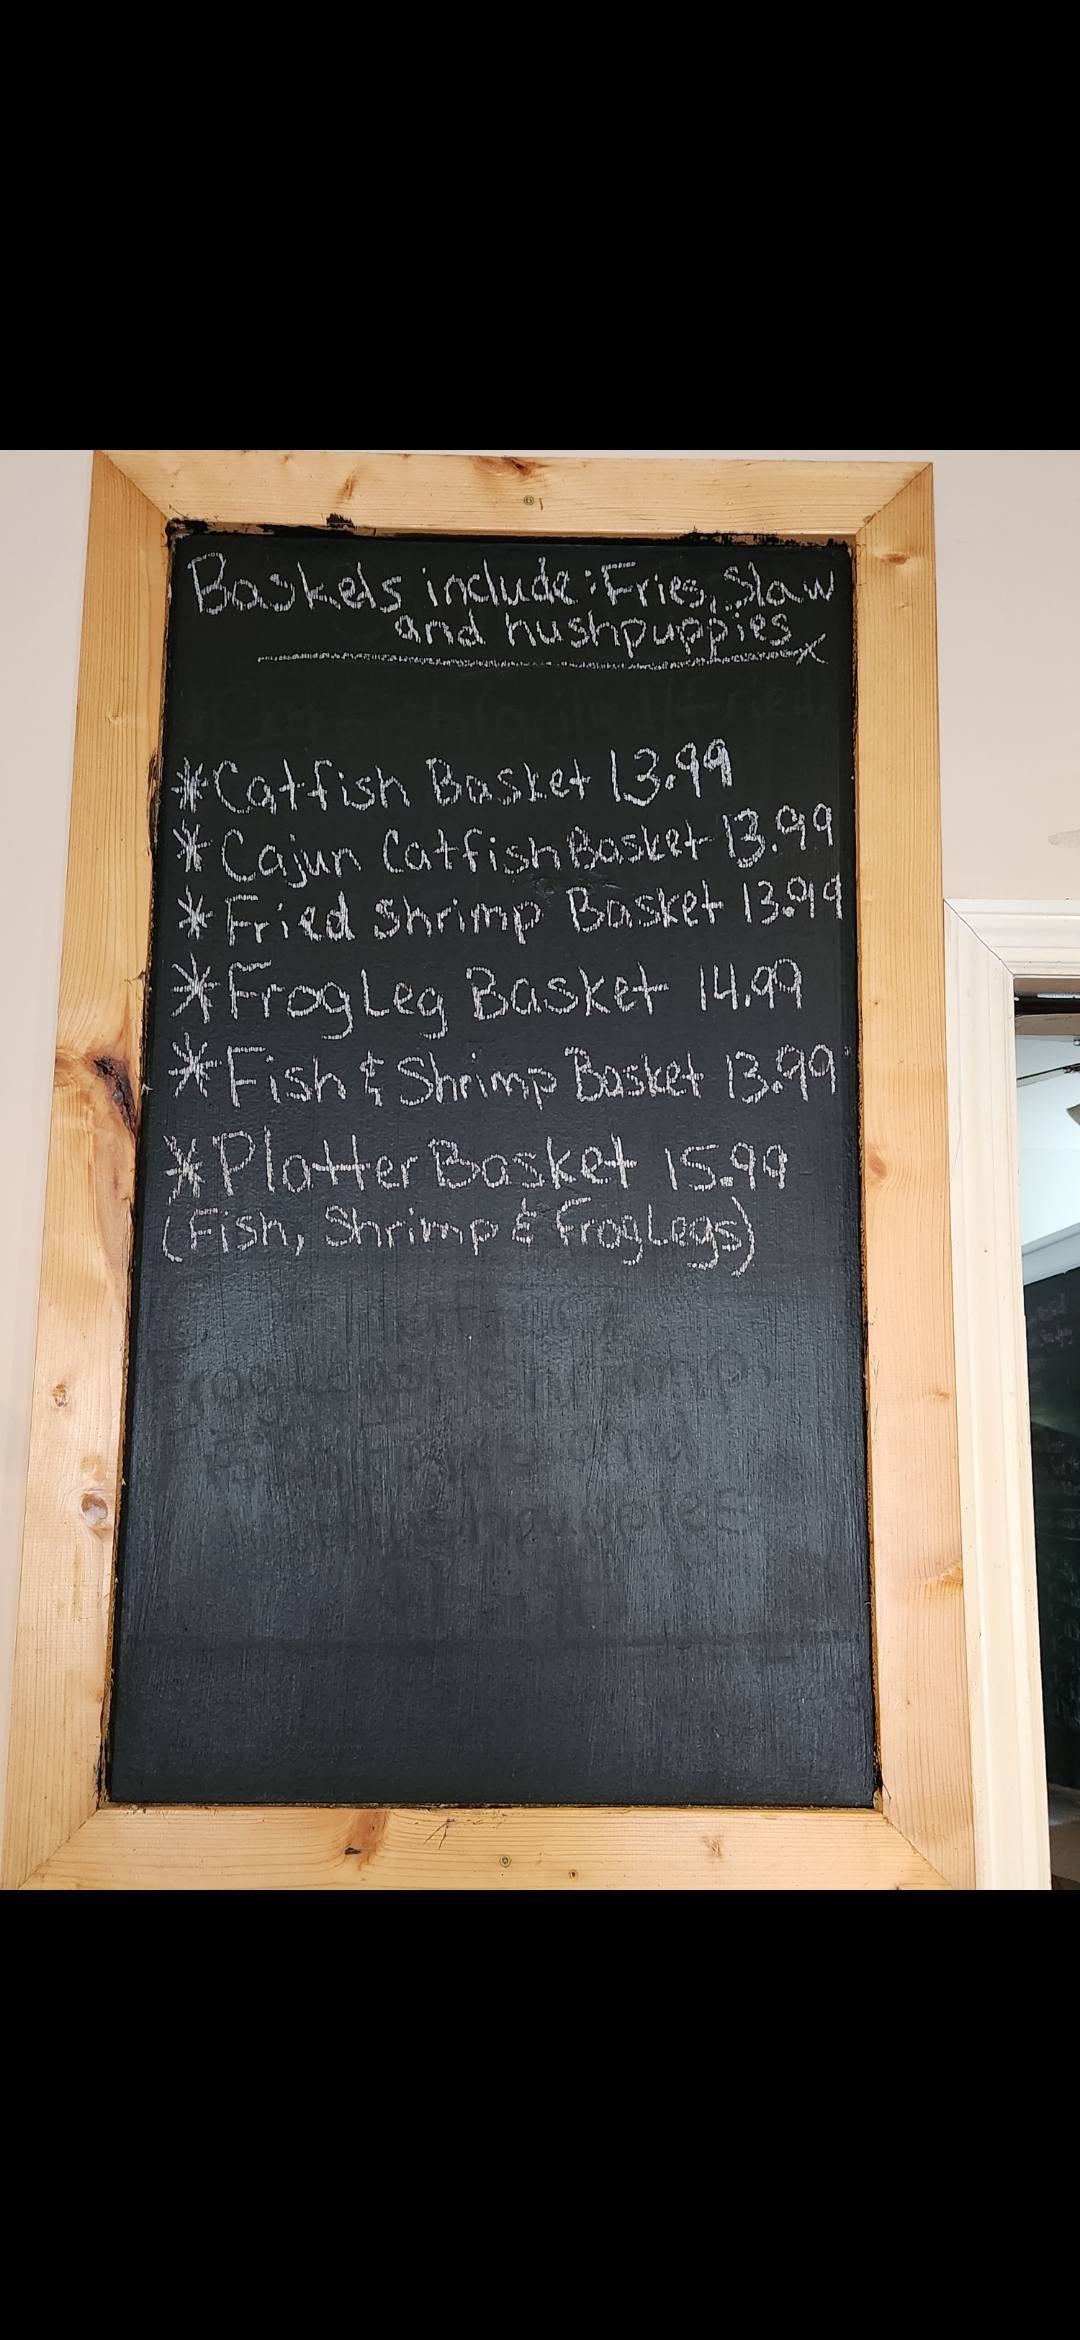 Baskets include: Fries, Slaw
and hushpuppies
*Catfish Basket 13.99
*Cajun Catfish Basket 13.99
*Fried Shrimp Basket 13.99
*Frog Leg Basket 14.99
*Fish & Shrimp Basket 13.99
*Platter Basket 15.99
(Fish, Shrimp & Frog Legs)